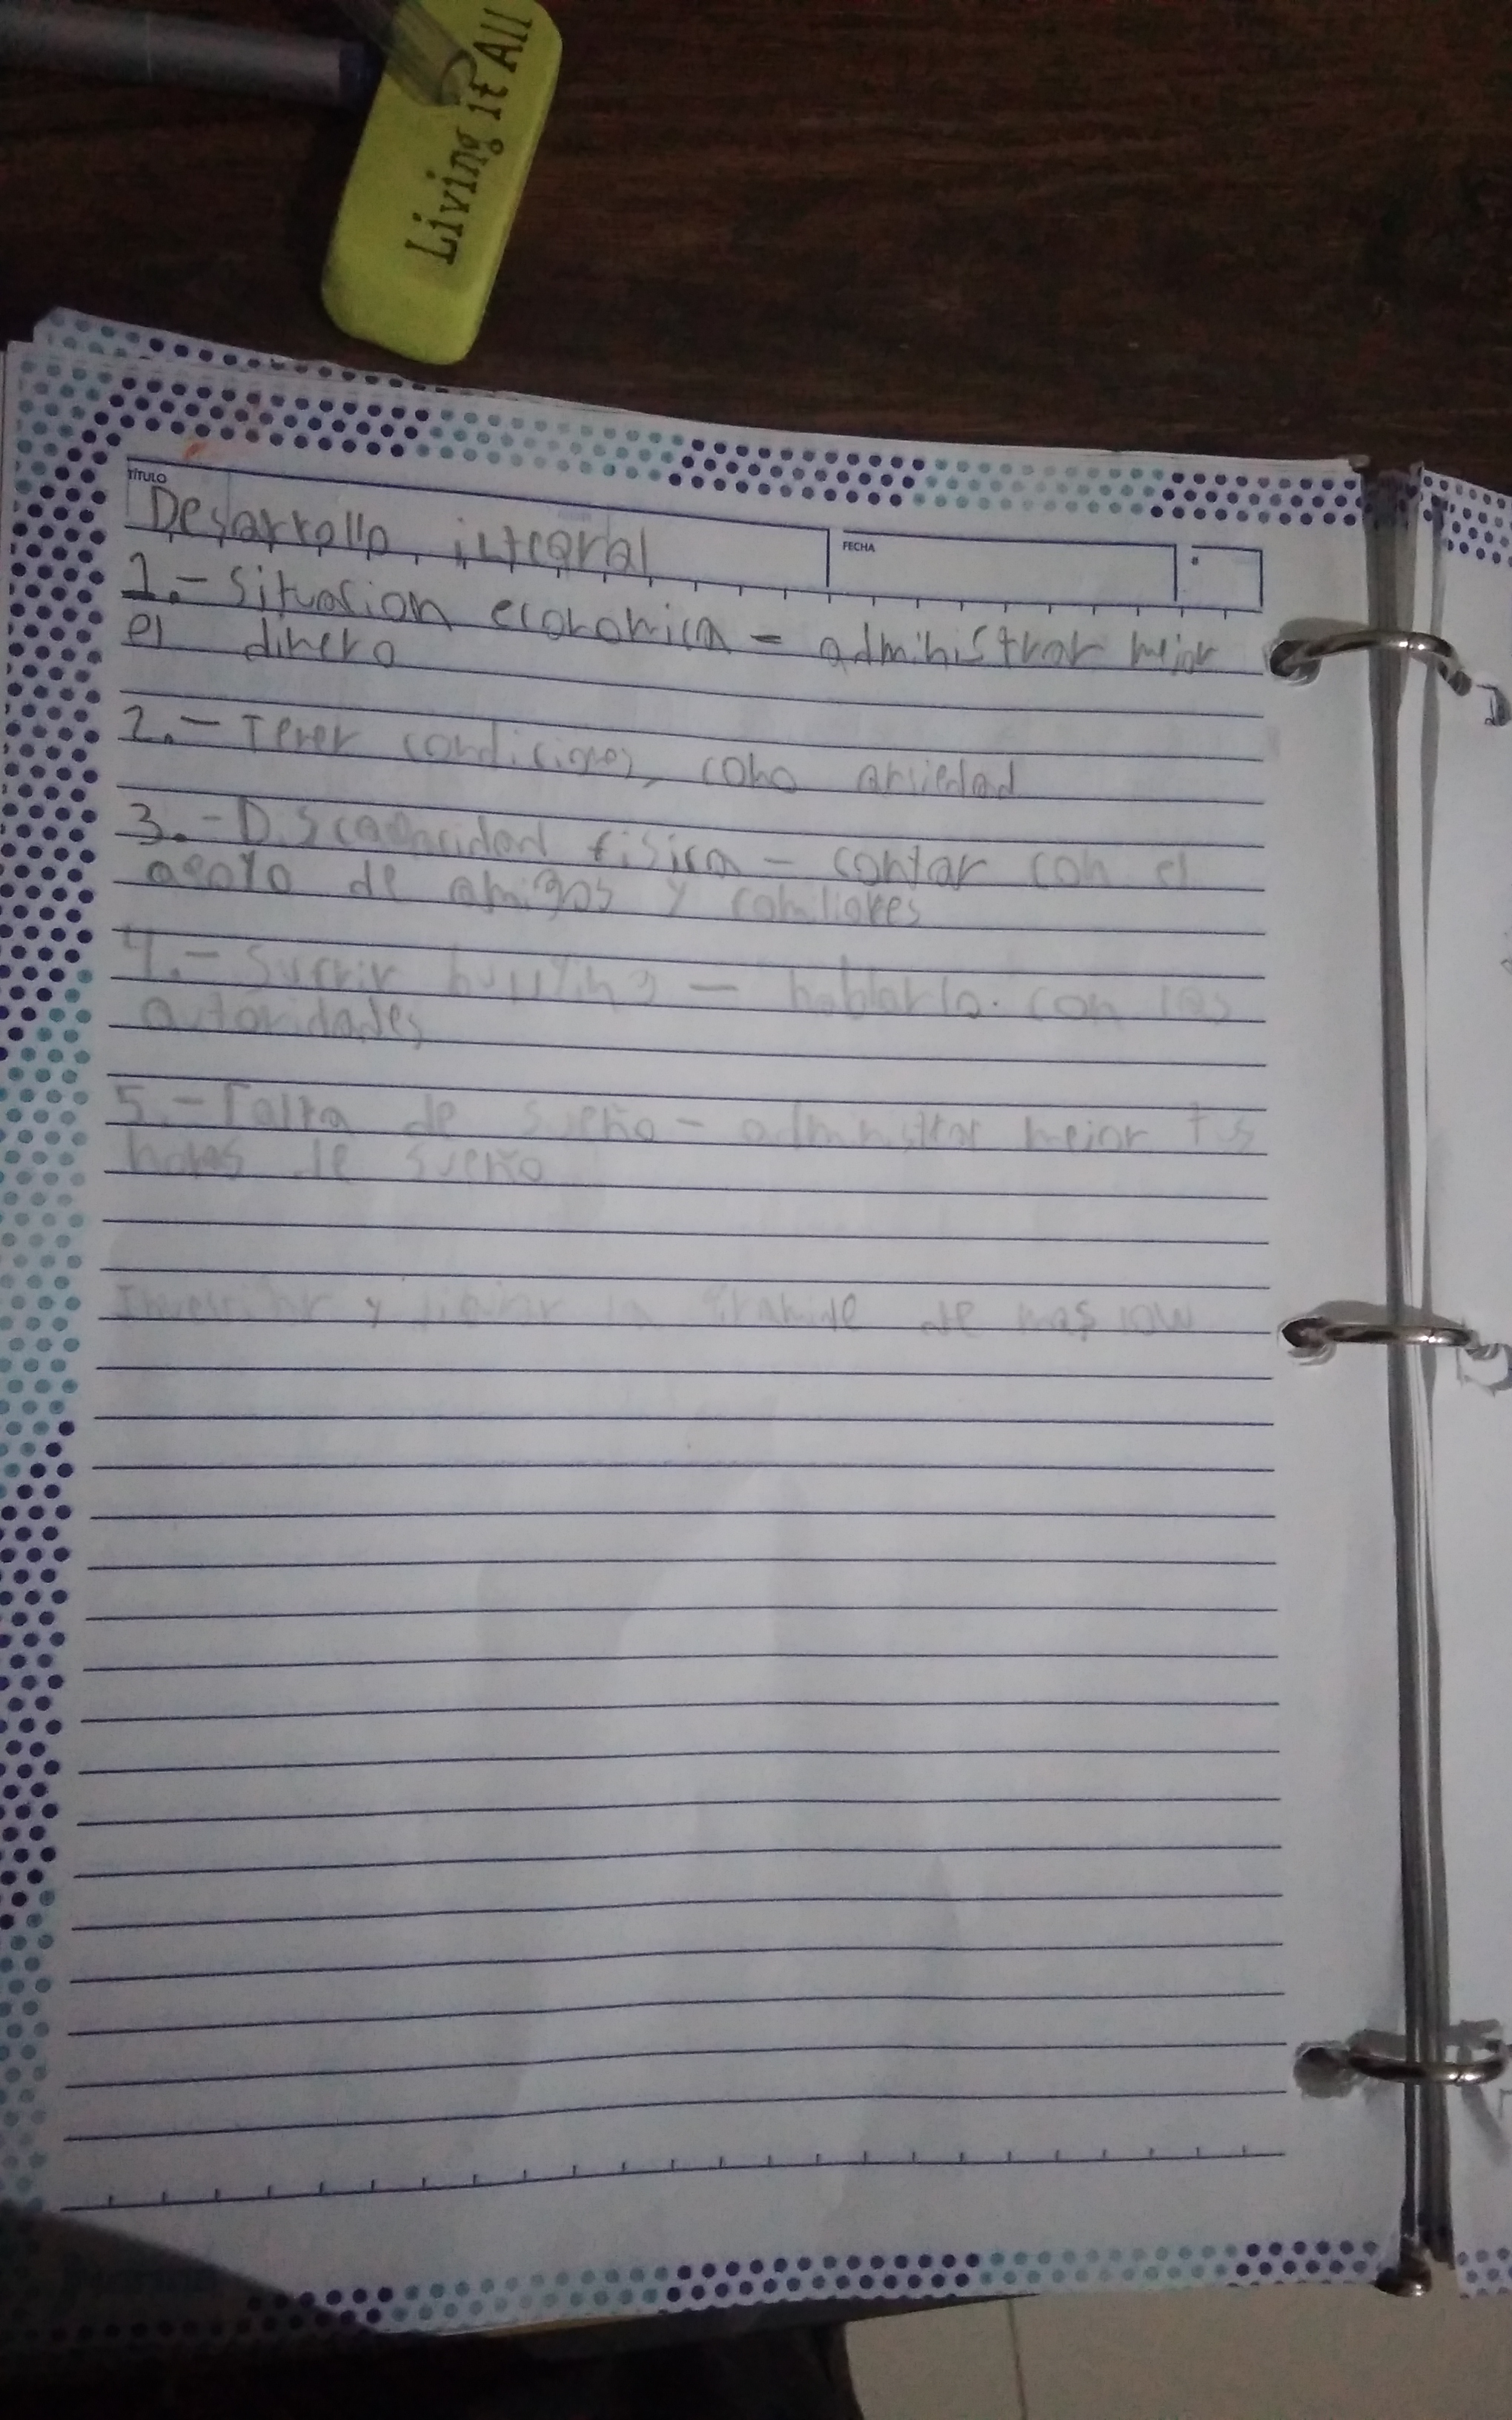 Living it All
TÍTULO
Desarrollo integral
FECHA
1.- Situacion economica - administrar mejor
el dinero
2.- Tener condiciones, como ansiedad
3.- Discapacidad fisica - contar con el
apoyo de amigos y familiares
4.- Sufrir bullying - hablarlo con las
autoridades
5.- Falta de sueño - administrar mejor tus
horas de sueño
Investigar y la Piramide de maslow